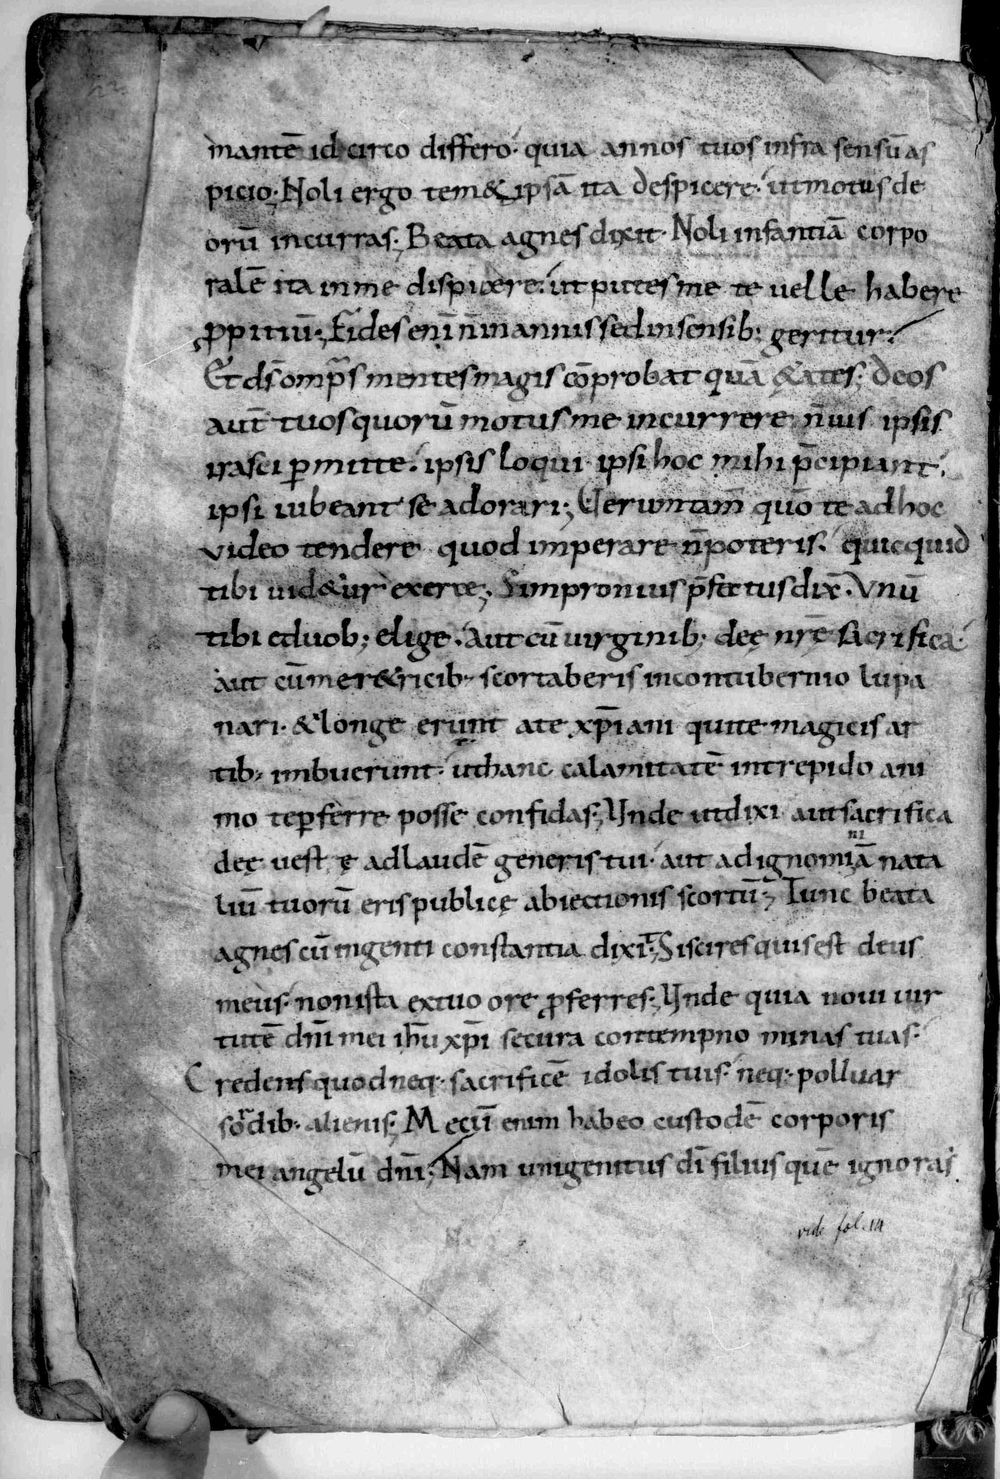 mantē id circo differo· quia annos tuos infra sensūas
picio; Noli ergo tem& ipsā ita despicere· ut motus de
orū incurras; Beata agnes dixit· Noli infantiā corpo
ralē ita in me dispicere· ut putes me te uelle habere
ꝓpitiū; Fides enī n̄ in annis sed in sensib; geritur·
Et ds̄ omp̄s mentes magis cōprobat quā &ates; deos
aut̄ tuos quorū motus me incurrere n̄ uis ipsis
irasci ꝑmitte· ipsis loqui ipsi hoc mihi p̄cipiant·
ipsi iubeant se adorari; Ueruntam̄ quō te ad hoc
video tendere quod imperare n̄ poteris· quicquid
tibi uid&ur exerce; Simpronius p̄fectus dix̄· Vnū
tibi eduob; elige· Aut cū uirginib; deę nr̄ę sacrifica·
Aut cū mer&ricib· scortaberis incontubernio lupa
nari· & longe erunt ate xp̄iani quite magicis ar
tib· imbuerunt· ut hanc calamitatē intrepido ani
mo teꝑferre posse confidas; Unde ut dixi aut sacrifica
deę uestę ad laudē generis tui· aut ad ignomiā nata
ni
liū tuorū eris publicę abiectionis scortū; Tunc beata
agnes cū ingenti constantia dixit; Si scires quis est deus
meus· non ista ex tuo ore ꝓferres; Unde quia noui uir
tutē dn̄i mei ih̄u xp̄i secura contempno minas tuas·
Credens quod neq· sacrificē idolis tuis· neq· polluar
sordib· alienis; Mecū enim habeo custodē corporis
mei angelū dn̄i; Nam unigenitus dī filius quē ignoras
vide fol. 14